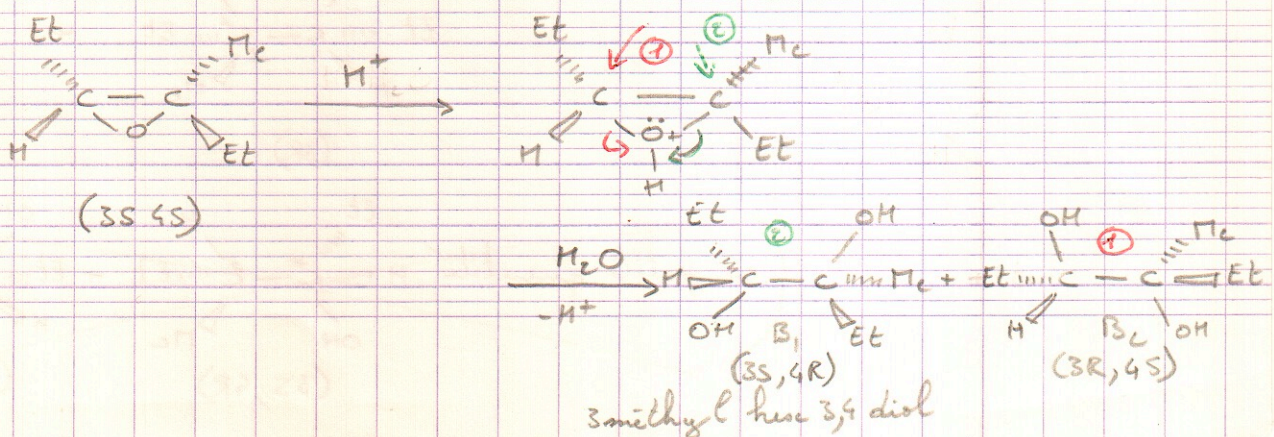 Et
Me
H⁺
C — C
O
H
Et
(3S 4S)
Et
①
②
Me
C — C
H
Ö+
Et
H
H₂O
-H⁺
Et
②
OH
H C — C Me +
OH
B₁
Et
(3S, 4R)
OH
①
Me
Et C — C Et
H
B₂
OH
(3R, 4S)
3 méthyl hexe 3,4 diol